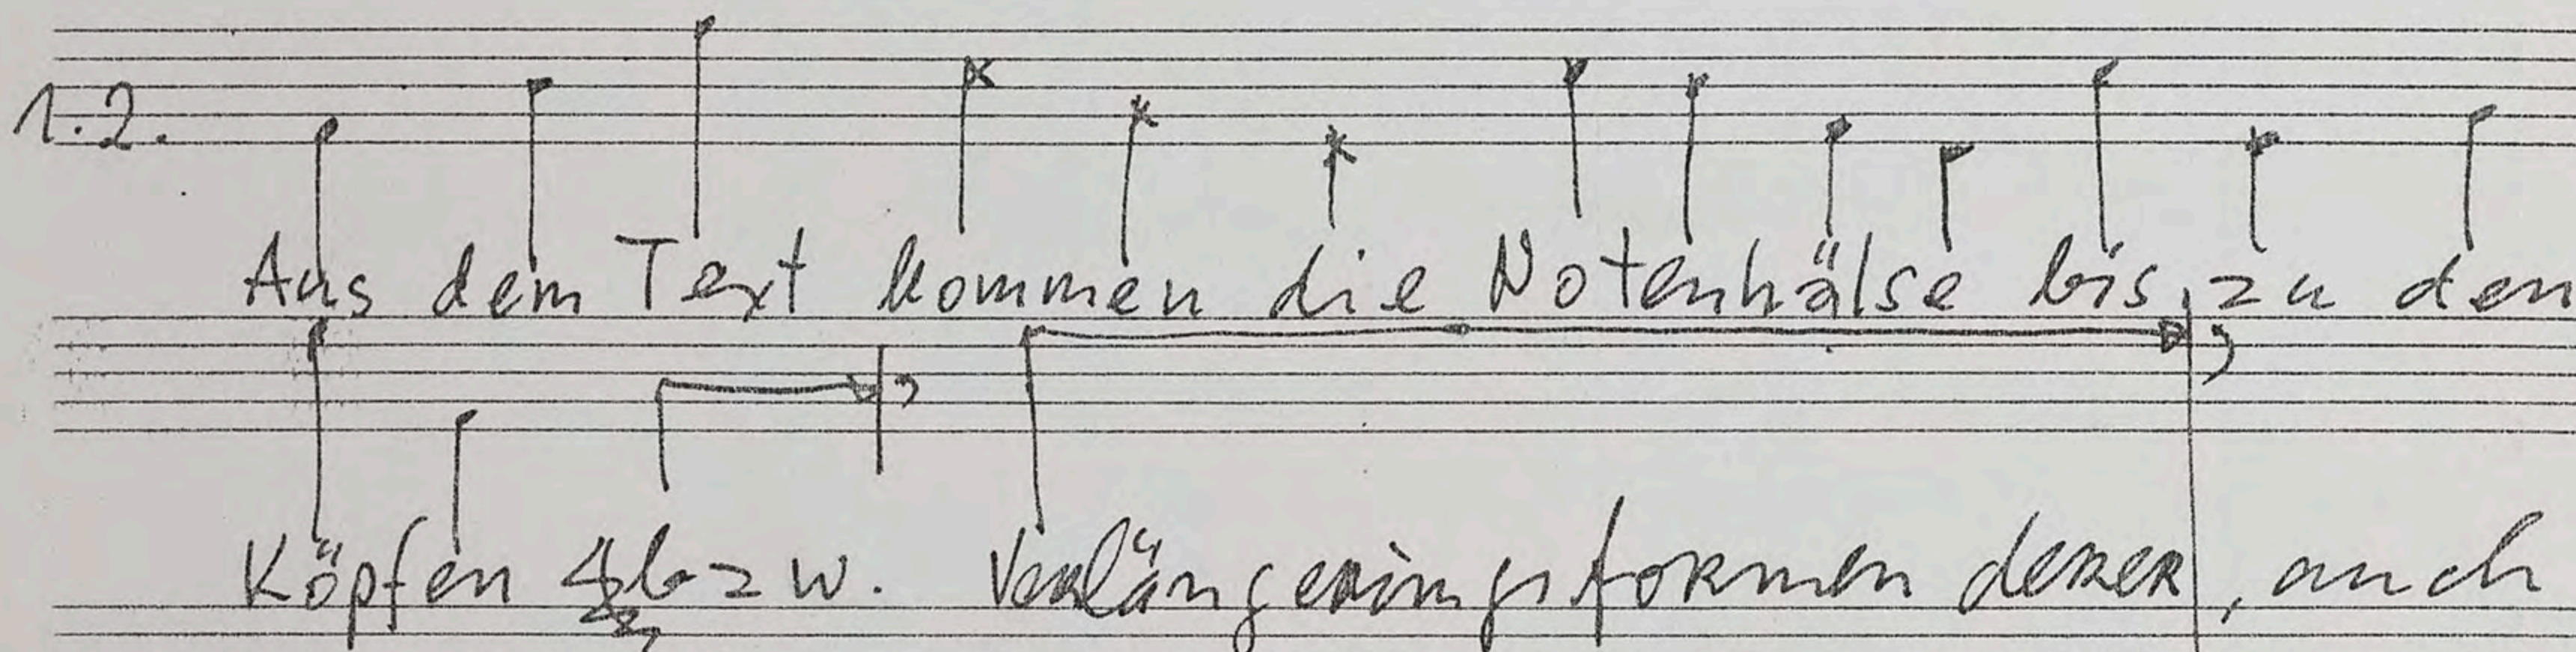 1.2.
Aus dem Text kommen die Notenhälse bis zu den
Köpfen bzw. Verlängerungsformen derer, auch